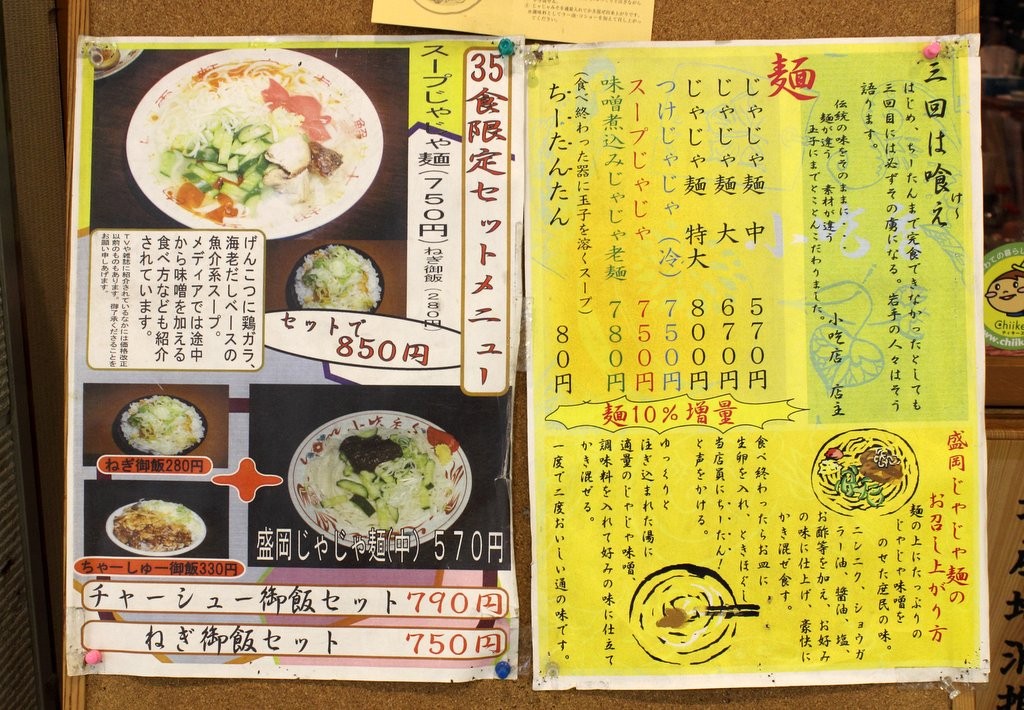 35食限定セットメニュー
スープじゃじゃ麺(750円)
ねぎ御飯(280円)
セットで
850円
げんこつに鶏ガラ、
海老だしベースの
魚介系スープ。
メディアでは途中
から味噌を加える
食べ方なども紹介
されています。
TVや雑誌に紹介されているなかには価格改正
以前のものもあります。御了承くださることを
お願い申しあげます。
ねぎ御飯280円
ちゃーしゅー御飯330円
盛岡じゃじゃ麺(中)570円
チャーシュー御飯セット 790円
ねぎ御飯セット 750円
三回は喰え
け〜
はじめ、ちーたんまで完食できなかったとしても
三回目には必ずその虜になる。岩手の人々はそう
語ります。
伝統の味をそのままに
麺が違う 素材が違う
玉子にまでとことんこだわりました。
小吃店 店主
麺
じゃじゃ麺 中 570円
じゃじゃ麺 大 670円
じゃじゃ麺 特大 800円
つけじゃじゃ(冷) 750円
スープじゃじゃ 750円
味噌煮込みじゃじゃ老麺 780円
(食べ終わった器に玉子を溶くスープ)
ちーたんたん 80円
麺10%増量
盛岡じゃじゃ麺の
お召し上がり方
麺の上にたっぷりの
じゃじゃ味噌を
のせた庶民の味。
ニンニク、ショウガ
ラー油、醤油、塩、
お酢等を加え、お好み
の味に仕上げ、豪快に
かき混ぜ食す。
食べ終わったらお皿に
生卵を入れ、ときほぐし
当店員にちーたん!
と声をかける。
ゆっくりと
注ぎ込まれた湯に
適量のじゃじゃ味噌、
調味料を入れて好みの味に仕立て
かき混ぜる。
一度で二度おいしい通の味です。